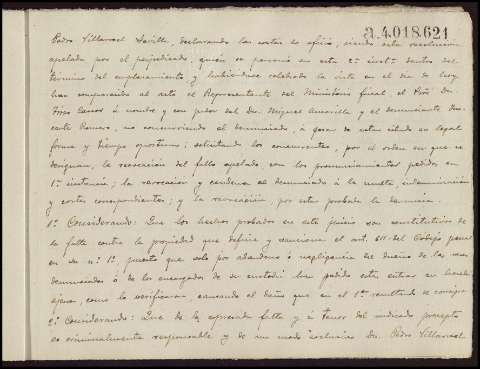 a.4.018.621
Pedro Villarroel Sevilla, declarando las costas de oficio; siendo esta resolución
apelada por el perjudicado, quién se personó en esta 2ª instª dentro del
término del emplazamiento y habiendose celebrado la vista en el día de hoy
han comparecido al acto el Representante del Ministerio fiscal el Pror Dn
á nombre y con poder del Dn Miguel Amarilla y el denunciante
Romero, no concurriendo el denunciado, á pesar de estar citado en legal
forma y tiempo oportuno; solicitando los concurrentes, por el orden en que se
designan, la revocación del fallo apelado, con los pronunciamientos pedidos en
1ª instancia; la revocación y condena al denunciado á la multa, indemnización
y costas correspondientes; y la revocación, por estar probada la denuncia.
1º Considerando: Que los hechos probados en este juicio son constitutivos de
la falta contra la propiedad que define y sanciona el art. 611 del Código penal
en su nº 1º, puesto que solo por abandono ó negligencia del dueño de las reses
denunciadas ó de los encargados de su custodia han podido estas entrar en heredad
ajena, como lo verificaron, causando el daño que en el 1er resultando se consigna
2º Considerando: Que de la expresada falta y á tenor del indicado precepto
es criminalmente responsable y de un modo exclusivo Dn Pedro Villarroel